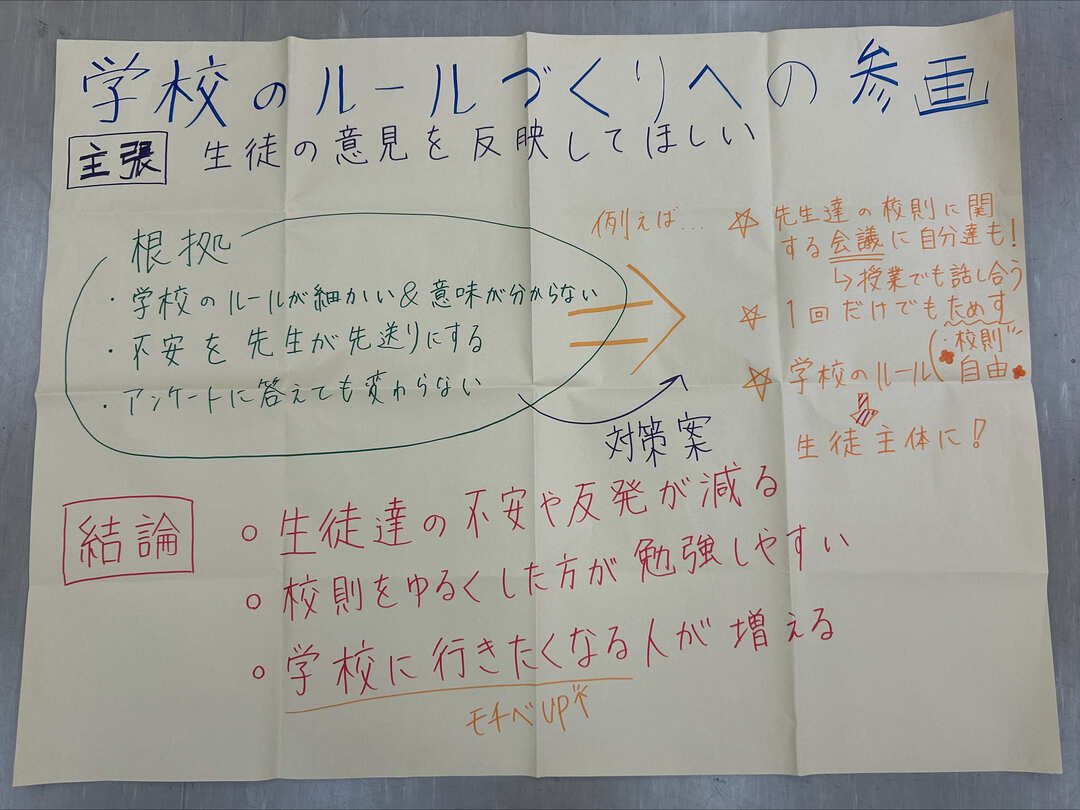 学校のルールづくりへの参画
主張 生徒の意見を反映してほしい
根拠
・学校のルールが細かい&意味が分からない
・不安を先生が先送りにする
・アンケートに答えても変わらない
対策案
例えば…
☆先生達の校則に関
する会議に自分達も!
↳授業でも話し合う
☆1回だけでもためす
☆学校のルール(・校則
自由
⇓
生徒主体に!
結論
○生徒達の不安や反発が減る
○校則をゆるくした方が勉強しやすい
○学校に行きたくなる人が増える
モチベUP